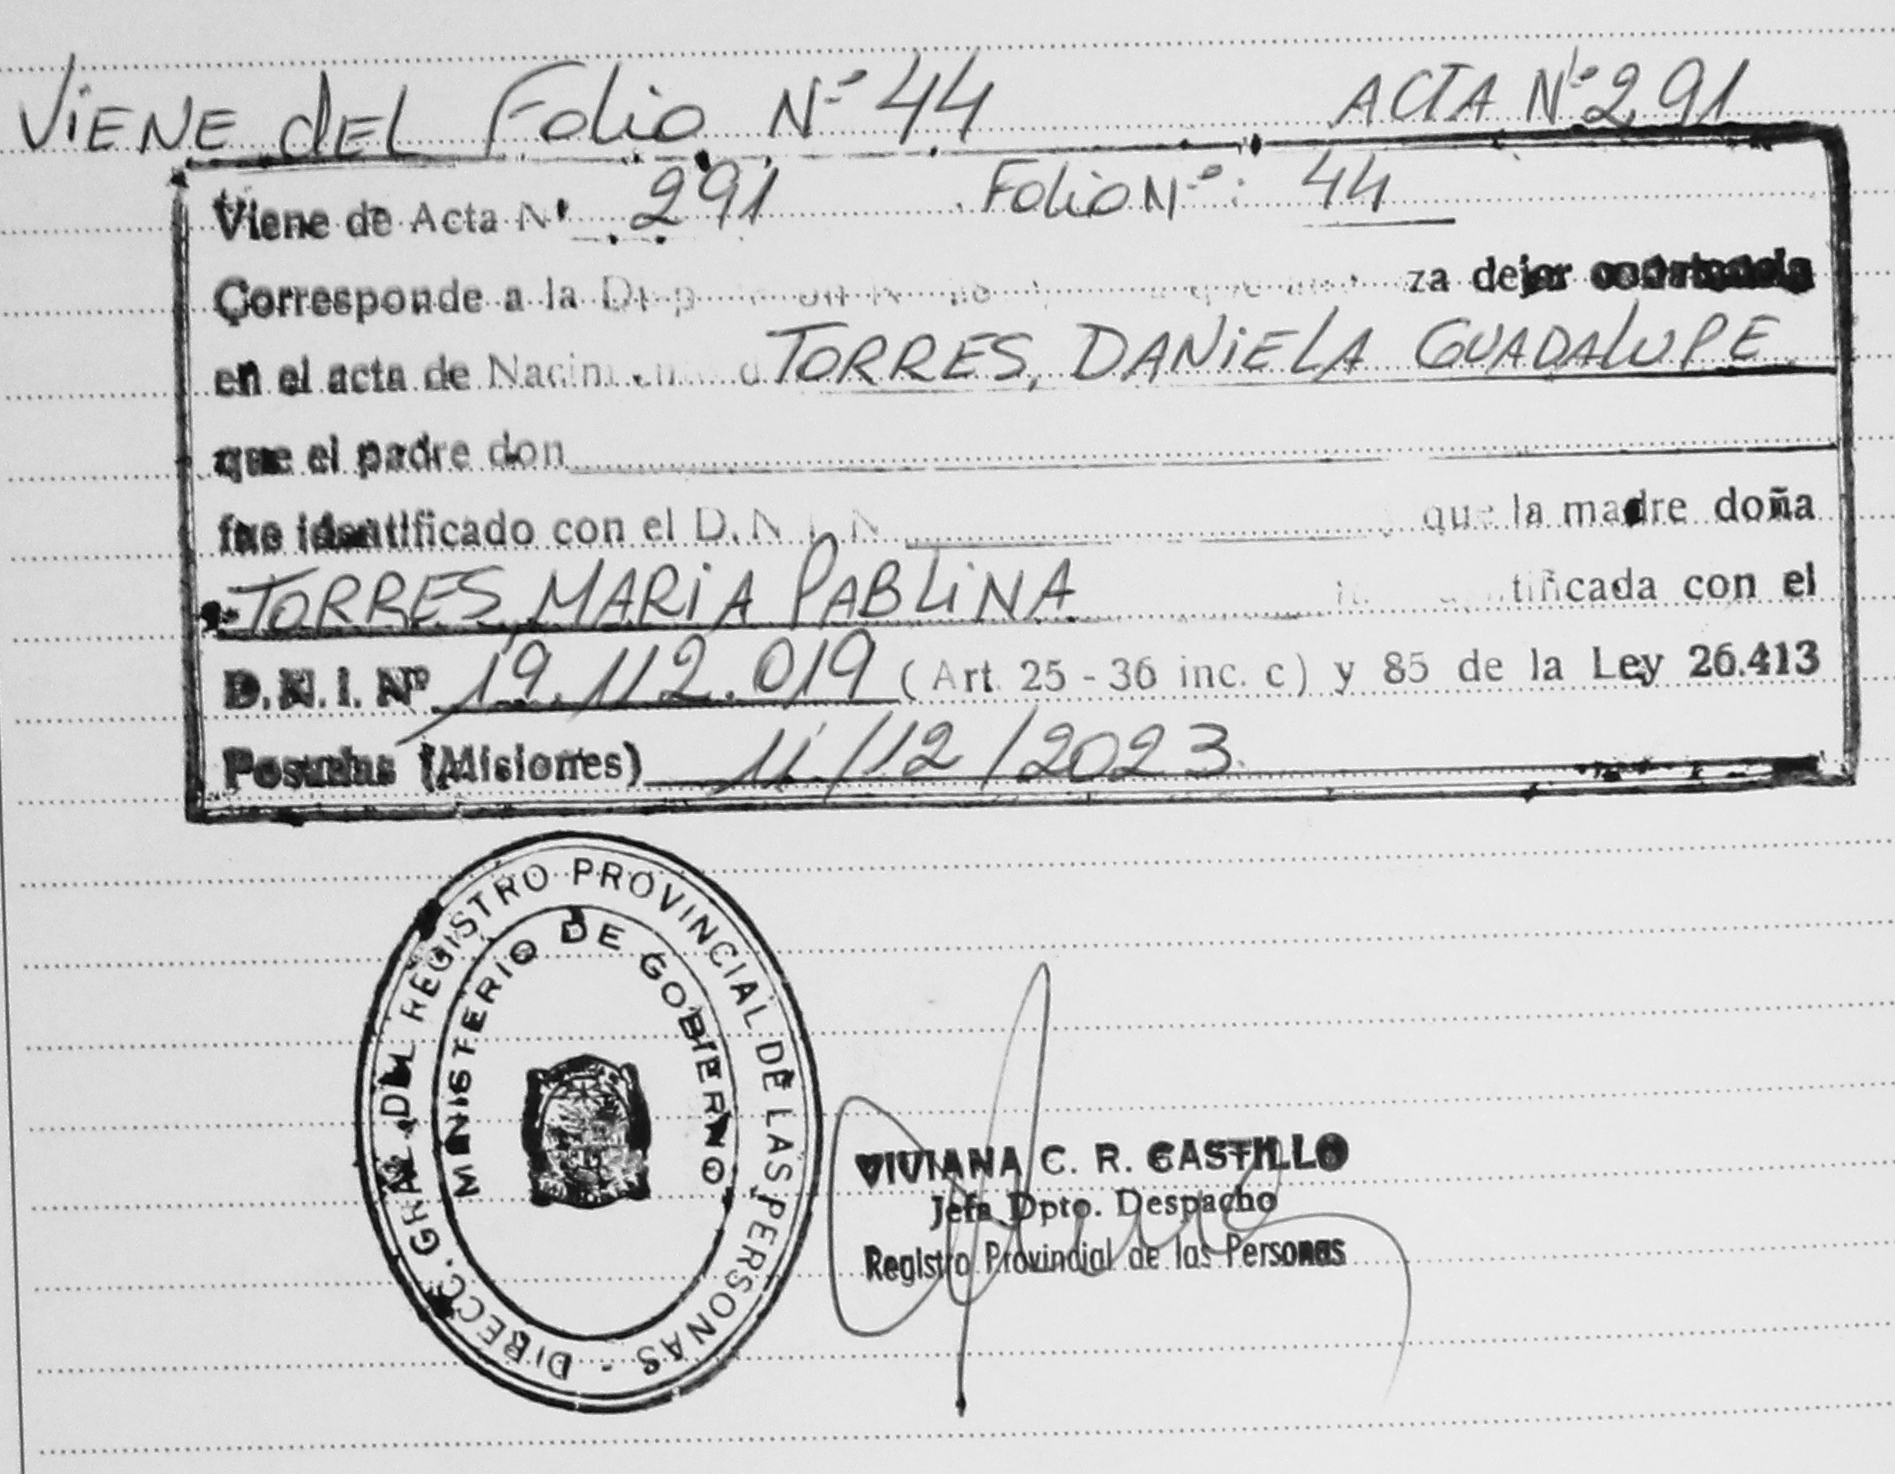 ViENE dEL Folio Nº 44 ACTA Nº 291
Viene de Acta Nº 291 Folio Nº: 44
Corresponde a la za dejar constancia
en el acta de TORRES, DANiELA GUADALUPE
que el padre don
fue identificado con el D.N.I. N que la madre doña
TORRES, MARiA PABLiNA tificada con el
D.N.I. Nº 19.112.019 (Art. 25 - 36 inc. c) y 85 de la Ley 26.413
Posadas (Misiones) 11/12/2023
DIRECC. GRAL. DEL REGISTRO PROVINCIAL DE LAS PERSONAS -
MINISTERIO DE GOBIERNO
VIVIANA C. R. CASTILLO
Jefa Dpto. Despacho
Registro Provincial de las Personas